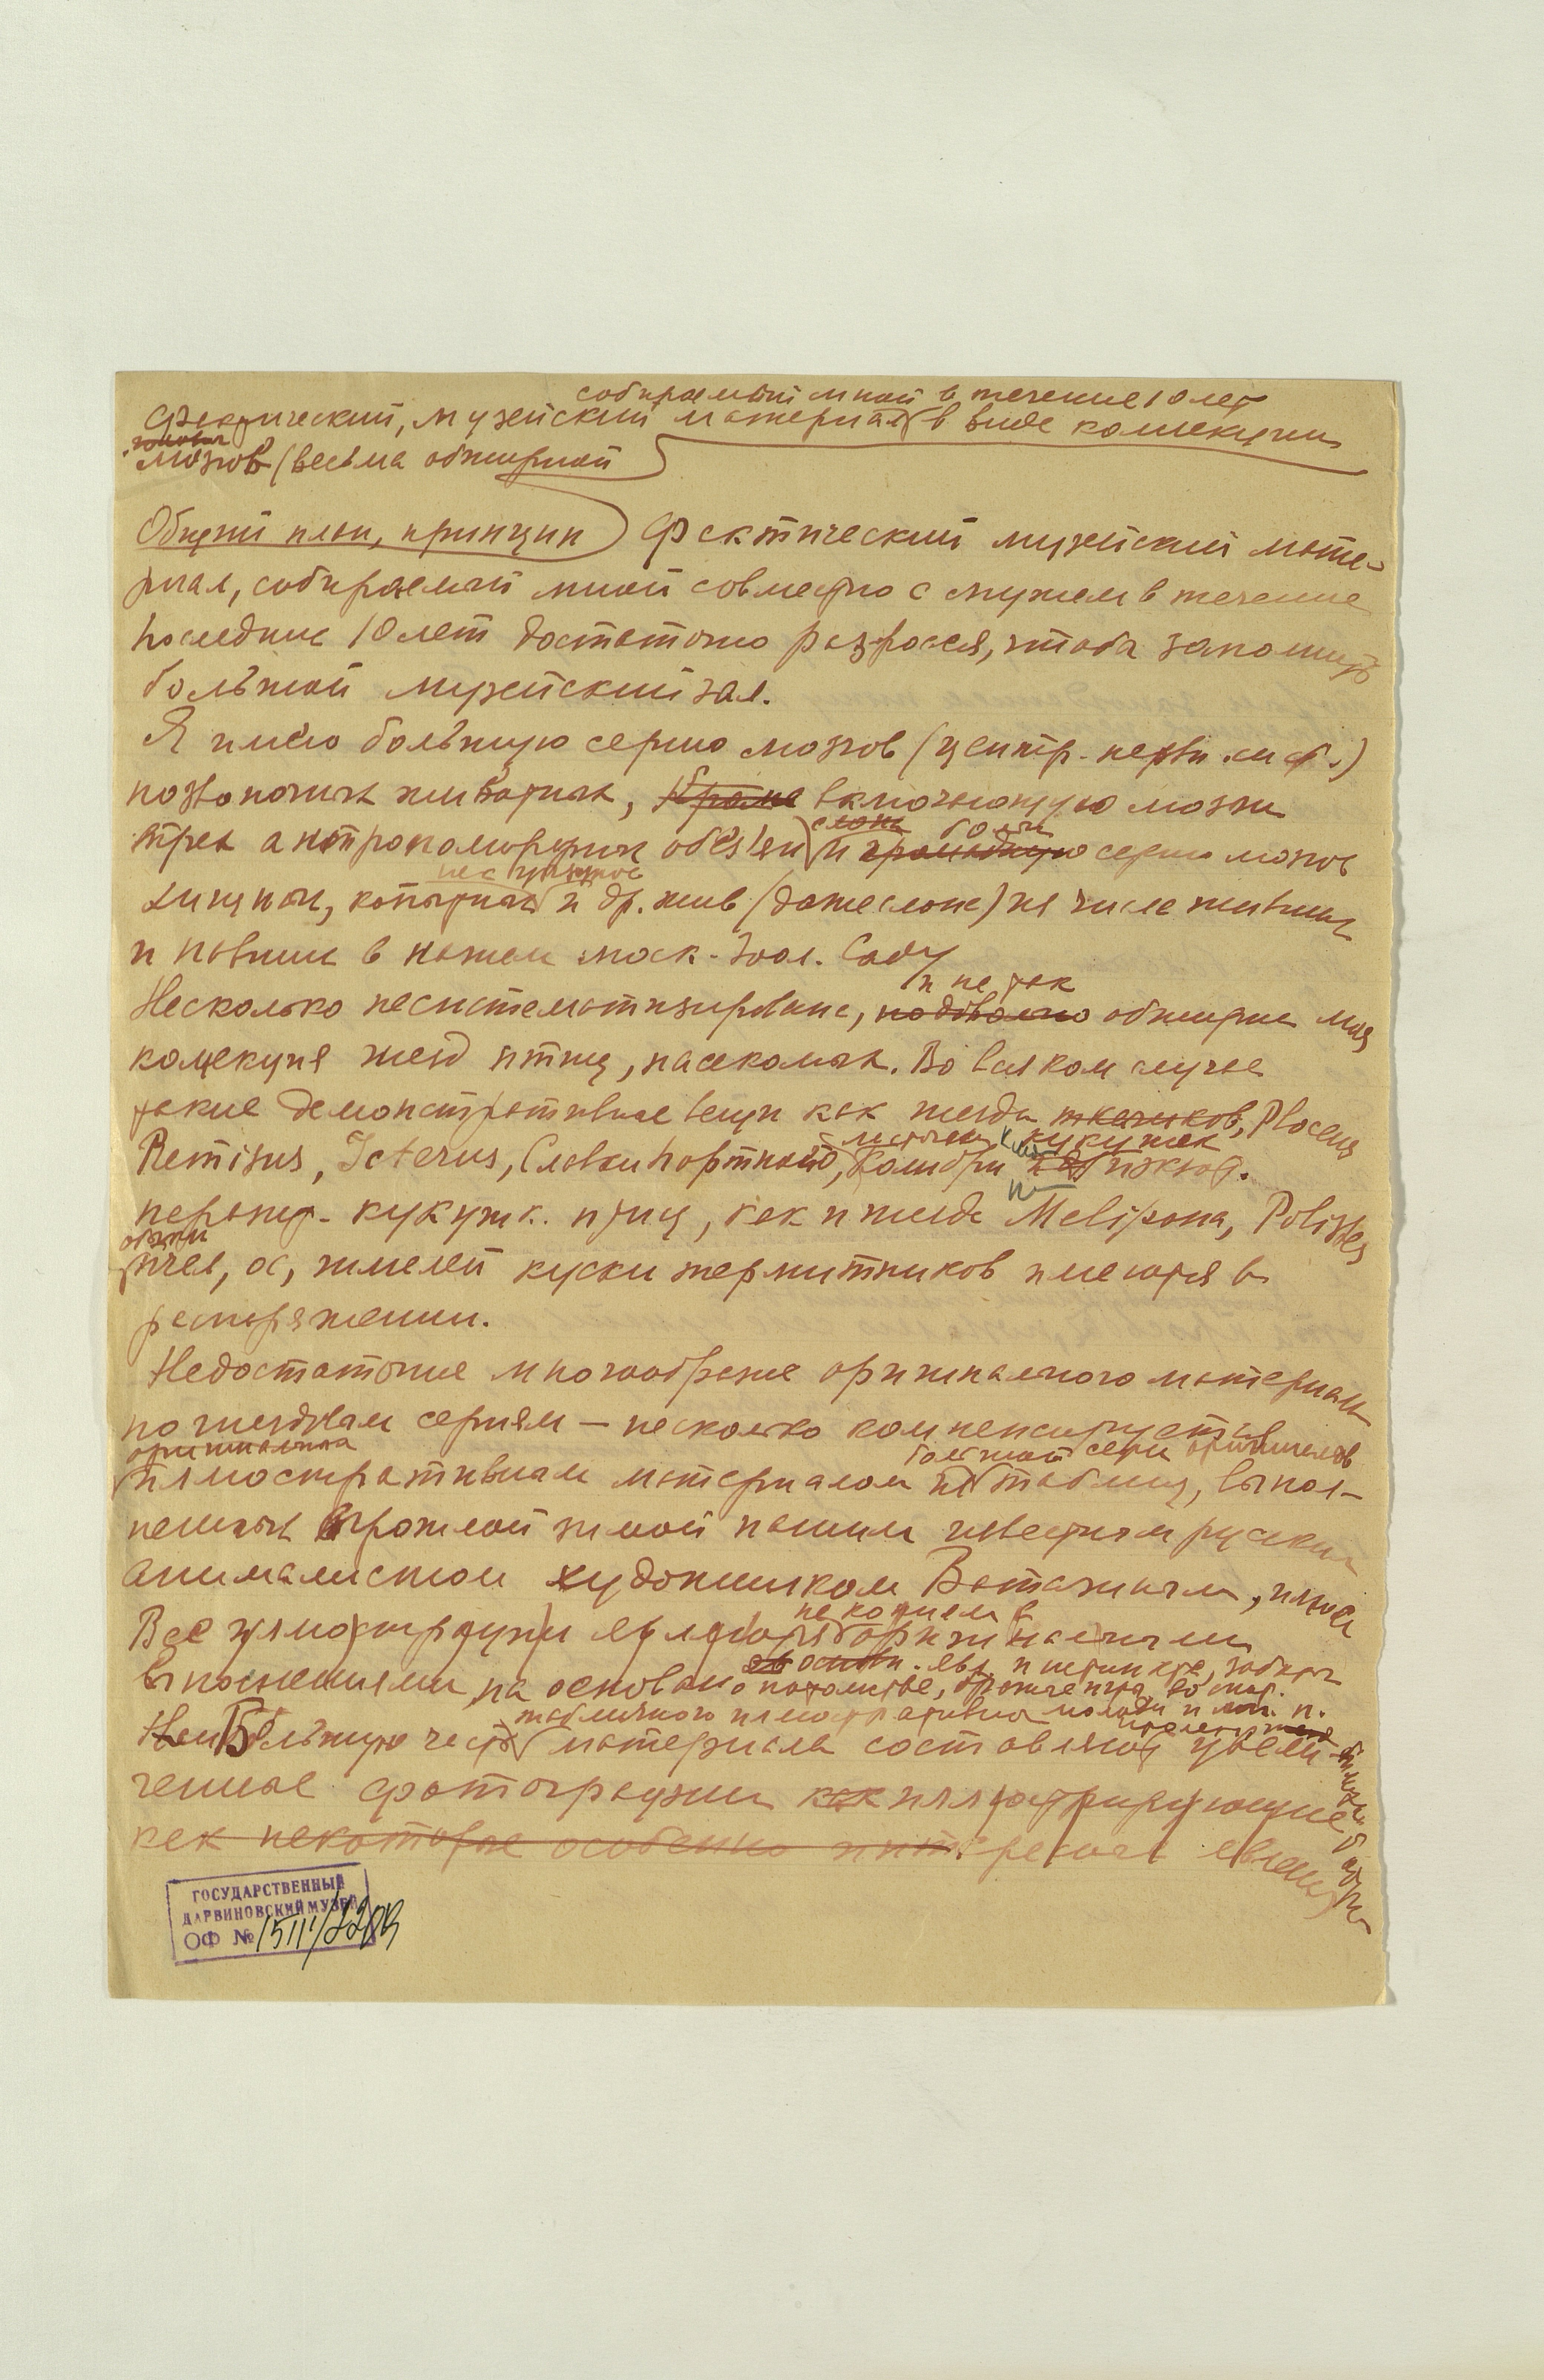 собираемый мной в течение 10 лет
Фактический, музейский материал в виде коллекции
мозгов (весьма обширной
Общий план, принцип) Фактический музейский мате-
риал, собираемый мной совместно с мужем в течение
последние 10 лет достаточно разросся, чтоба заполнить
большой музейский зал.
Я имею большую серию мозгов (центр. нервн. сист.)
позвоночных животных, кроме включающую мозги
трех антропоморфных обезьян и громадную серию мозгов
слона больш
хищных, копытных и др. жив (даже слона) из числе живших
и павших в нашем моск. Зоол. Саду
и не так
Несколько несистематизирована, обширна моя
коллекция гнезд птиц, насекомых. Во всяком случае
такие демонстративные вещи как гнезда ткачиков, Ploceus
Remisus, Icterus, Славки портной, Колибри
ласточки кукушек
кукушк. птиц, как и гнезда Melipona, Polistes
пчел, ос, шмелей куски термитников имеются в
распоряжении.
Недостаточное многообразие оригинального материала
по гнездвам сериям – несколько компенсируется
оригинальная большой серии оригиналов
иллюстративным материалом из таблиц, выпол-
ненных прошлой зимой нашим известным русским
анималистом художником Ватагиным,
не копием а
Все иллюстрации являются оригинальными
выполнениями на основан.
о потомстве,
табличного иллюстративн
Наибольшую часть материала составляют увели-
ченные фотографии как иллюстрирующие
как некоторые особенно интересные явлени
ГОСУДАРСТВЕННЫЙ
ДАРВИНОВСКИЙ МУЗЕЙ
ОФ №